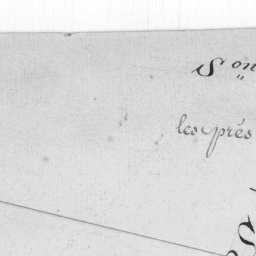 S on
les prés
S